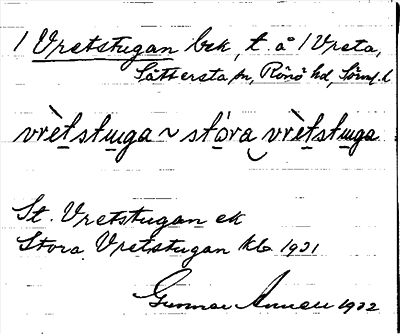 1 Vretstugan bsk, t. å 1 Vreta,
Sättersta sn, Rönö hd, Sörml. l.
vrètstuga ~ stóra vrètstuga
St. Vretstugan ek
Stora Vretstugan Kb 1921
Gunnar Anneu 1932